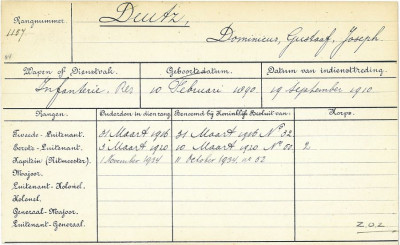 Rangnummer. Deutz,
1187 Dominicus, Gustaaf, Joseph
Wapen of Dienstvak. Geboortedatum. Datum van indiensttreding.
Infanterie. Res 10 Februari 1890. 19 September 1910.
Rangen. Ouderdom in dien rang. Benoemd bij Koninklijk Besluit van: Korps.
Tweede-Luitenant. 31 Maart 1916 31 Maart 1916 No 32.
Eerste-Luitenant. 3 Maart 1920 10 Maart 1920 No 80. 2
Kapitein (Ritmeester). 1 November 1934 11 October 1934 no 02
Majoor.
Luitenant-Kolonel.
Kolonel.
Generaal-Majoor.
Luitenant-Generaal. Z.O.Z.